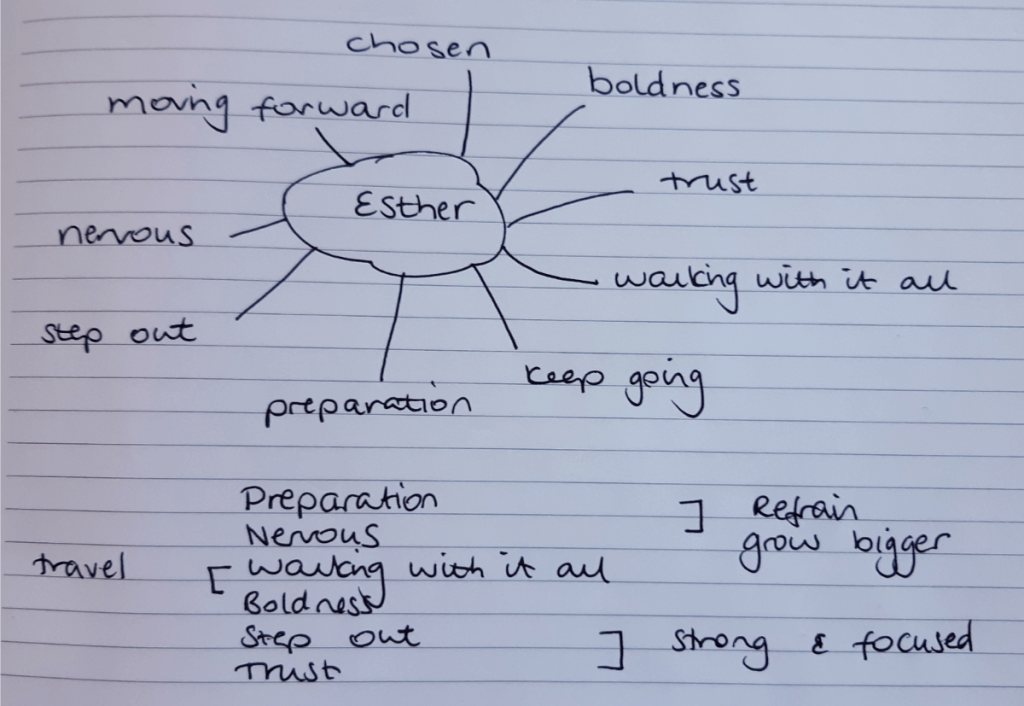 chosen
boldness
moving forward
trust
Esther
nervous
walking with it all
step out
keep going
preparation
Preparation ] Refrain
Nervous grow bigger
travel [ walking with it all
Boldness
Step out ] Strong & focused
Trust